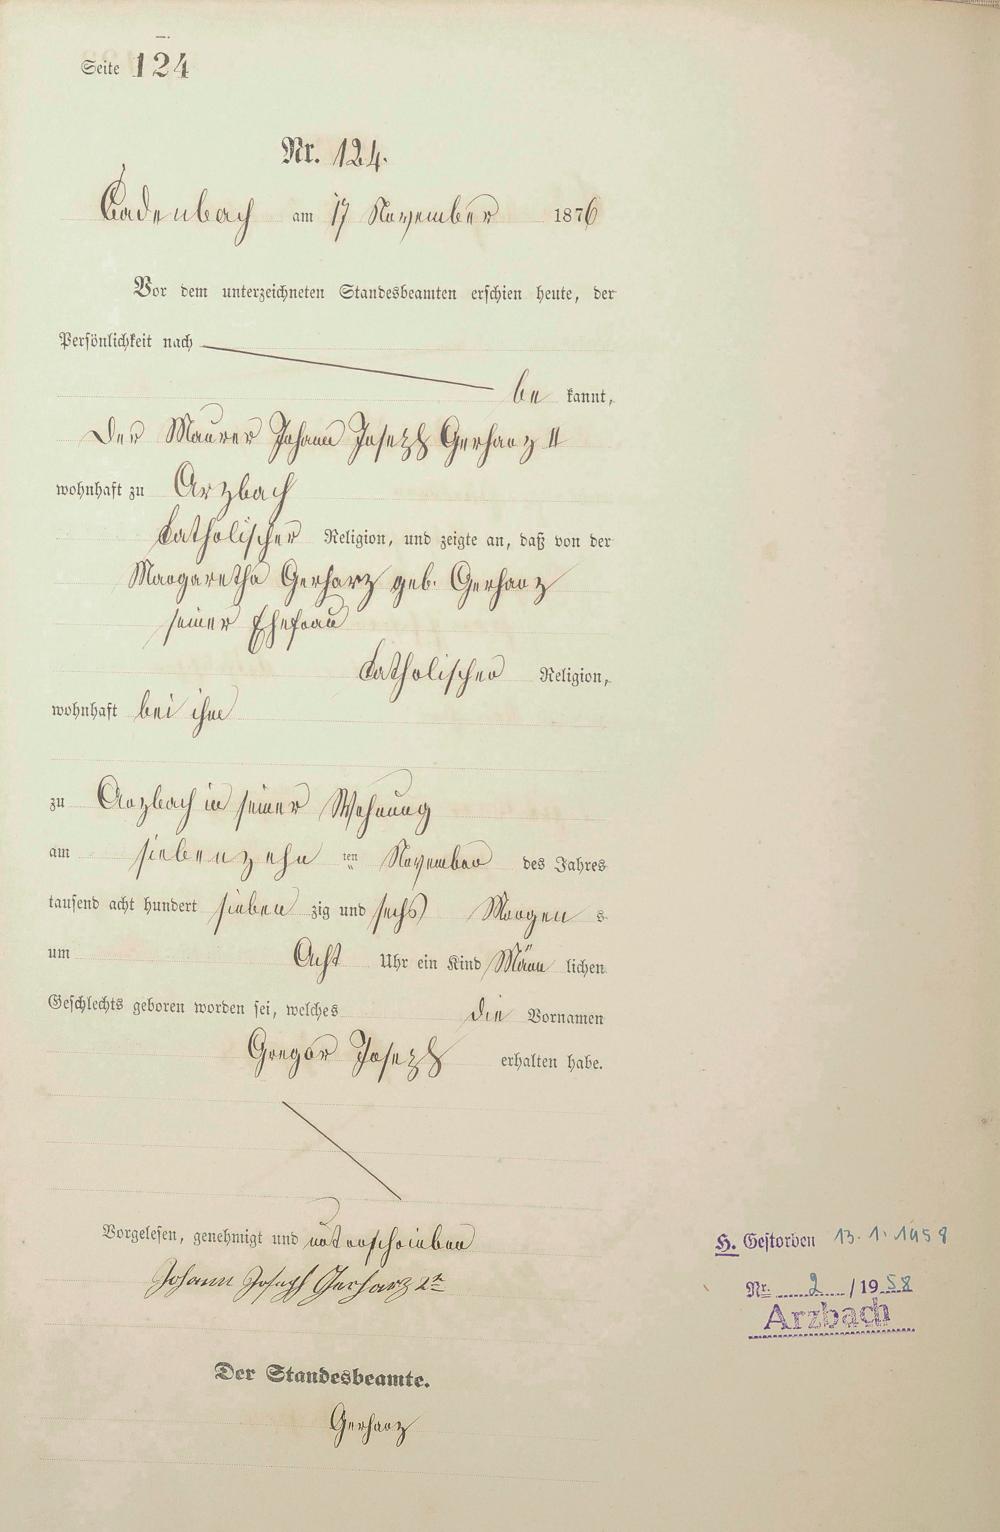 Seite 124
Nr. 124.
Cadenbach am 17 November 1876
Vor dem unterzeichneten Standesbeamten erschien heute, der
Persönlichkeit nach
be kannt,
Der Maurer Johann Joseph Gerharz II
wohnhaft zu Arzbach
katholischer Religion, und zeigte an, daß von der
Margaretha Gerharz geb. Gerharz
seiner Ehefrau
katholischer Religion,
wohnhaft bei ihm
zu Arzbach in seiner Wohnung
am siebenzehn ten November des Jahres
tausend acht hundert sieben zig und sechs Morgen s
um Acht Uhr ein Kind Männ lichen
Geschlechts geboren worden sei, welches die Vornamen
Gregor Joseph erhalten habe.
Vorgelesen, genehmigt und unterschrieben
Johann Joseph Gerharz 2te
Der Standesbeamte.
Gerharz
H. Gestorben 13. 1. 1958
Nr. 2 / 19 58
Arzbach